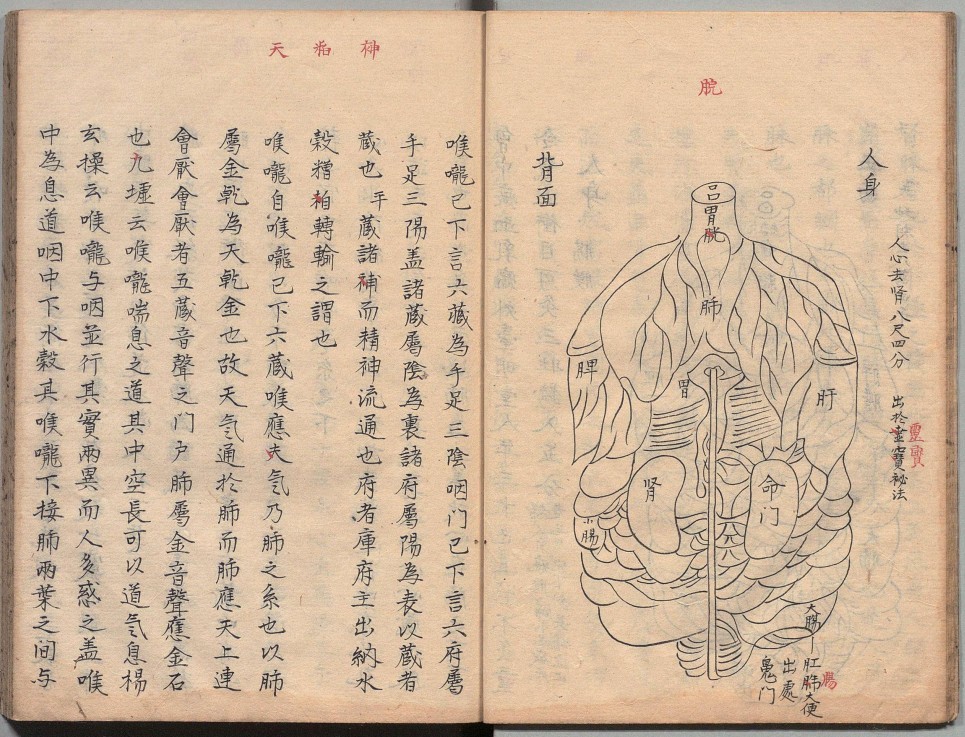 脘
人身
人心去肾八尺四分
出於霊寶秘法
靈寶
背面
吕胃脘
肺
脾
胃
肝
肾
命门
小腸
大腸
肛肺大便
腸
出處
鬼门
神㾗天
喉嚨已下言六蔵為手足三陰咽门已下言六府屬
手足三陽盖諸蔵屬陰為裏諸府屬陽為表以蔵者
蔵也手蔵諸補而精神流通也府者庫府主出納水
穀糟粕轉輸之謂也
喉嚨自喉嚨已下六蔵喉應夫気乃肺之系也以肺
屬金乾為天乾金也故天気通於肺而肺應天上連
會厭會厭者五蔵音聲之门户肺屬金音聲應金石
也九墟云喉嚨喘息之道其中空長可以道気息楊
玄操云喉嚨与咽並行其實兩異而人多惑之盖喉
中為息道咽中下水穀其喉嚨下接肺兩葉之间与